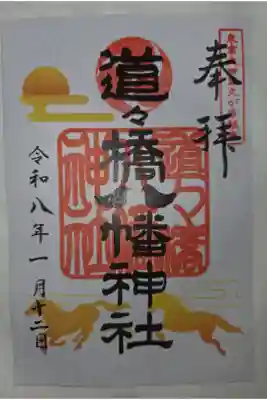 奉拝
道々橋八幡神社
令和八年一月十二日
道々橋
神社